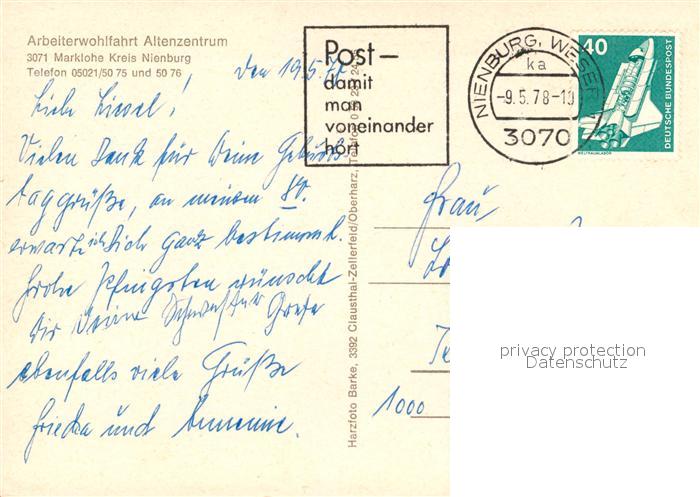 Arbeiterwohlfahrt Altenzentrum
3071 Marklohe Kreis Nienburg
Telefon 05021/50 75 und 50 76
den 19.5.78
Liebe Liesel!
Vielen Dank für Deine Geburts
taggrüße, an meinem 80.
erwarte ich Dich ganz bestimmt.
Frohe Pfingsten wünscht
Dir Deine Schwester Grete
ebenfalls viele Grüße
Frieda und
Post–
damit
man
voneinander
hört
NIENBURG, WESER 1
ka
-9.5.78-10
3070
40
DEUTSCHE BUNDESPOST
WELTRAUMLABOR
Harzfoto Barke, 3392 Clausthal-Zellerfeld/Oberharz, Telefon 0 53 23
Frau
1000
privacy protection
Datenschutz